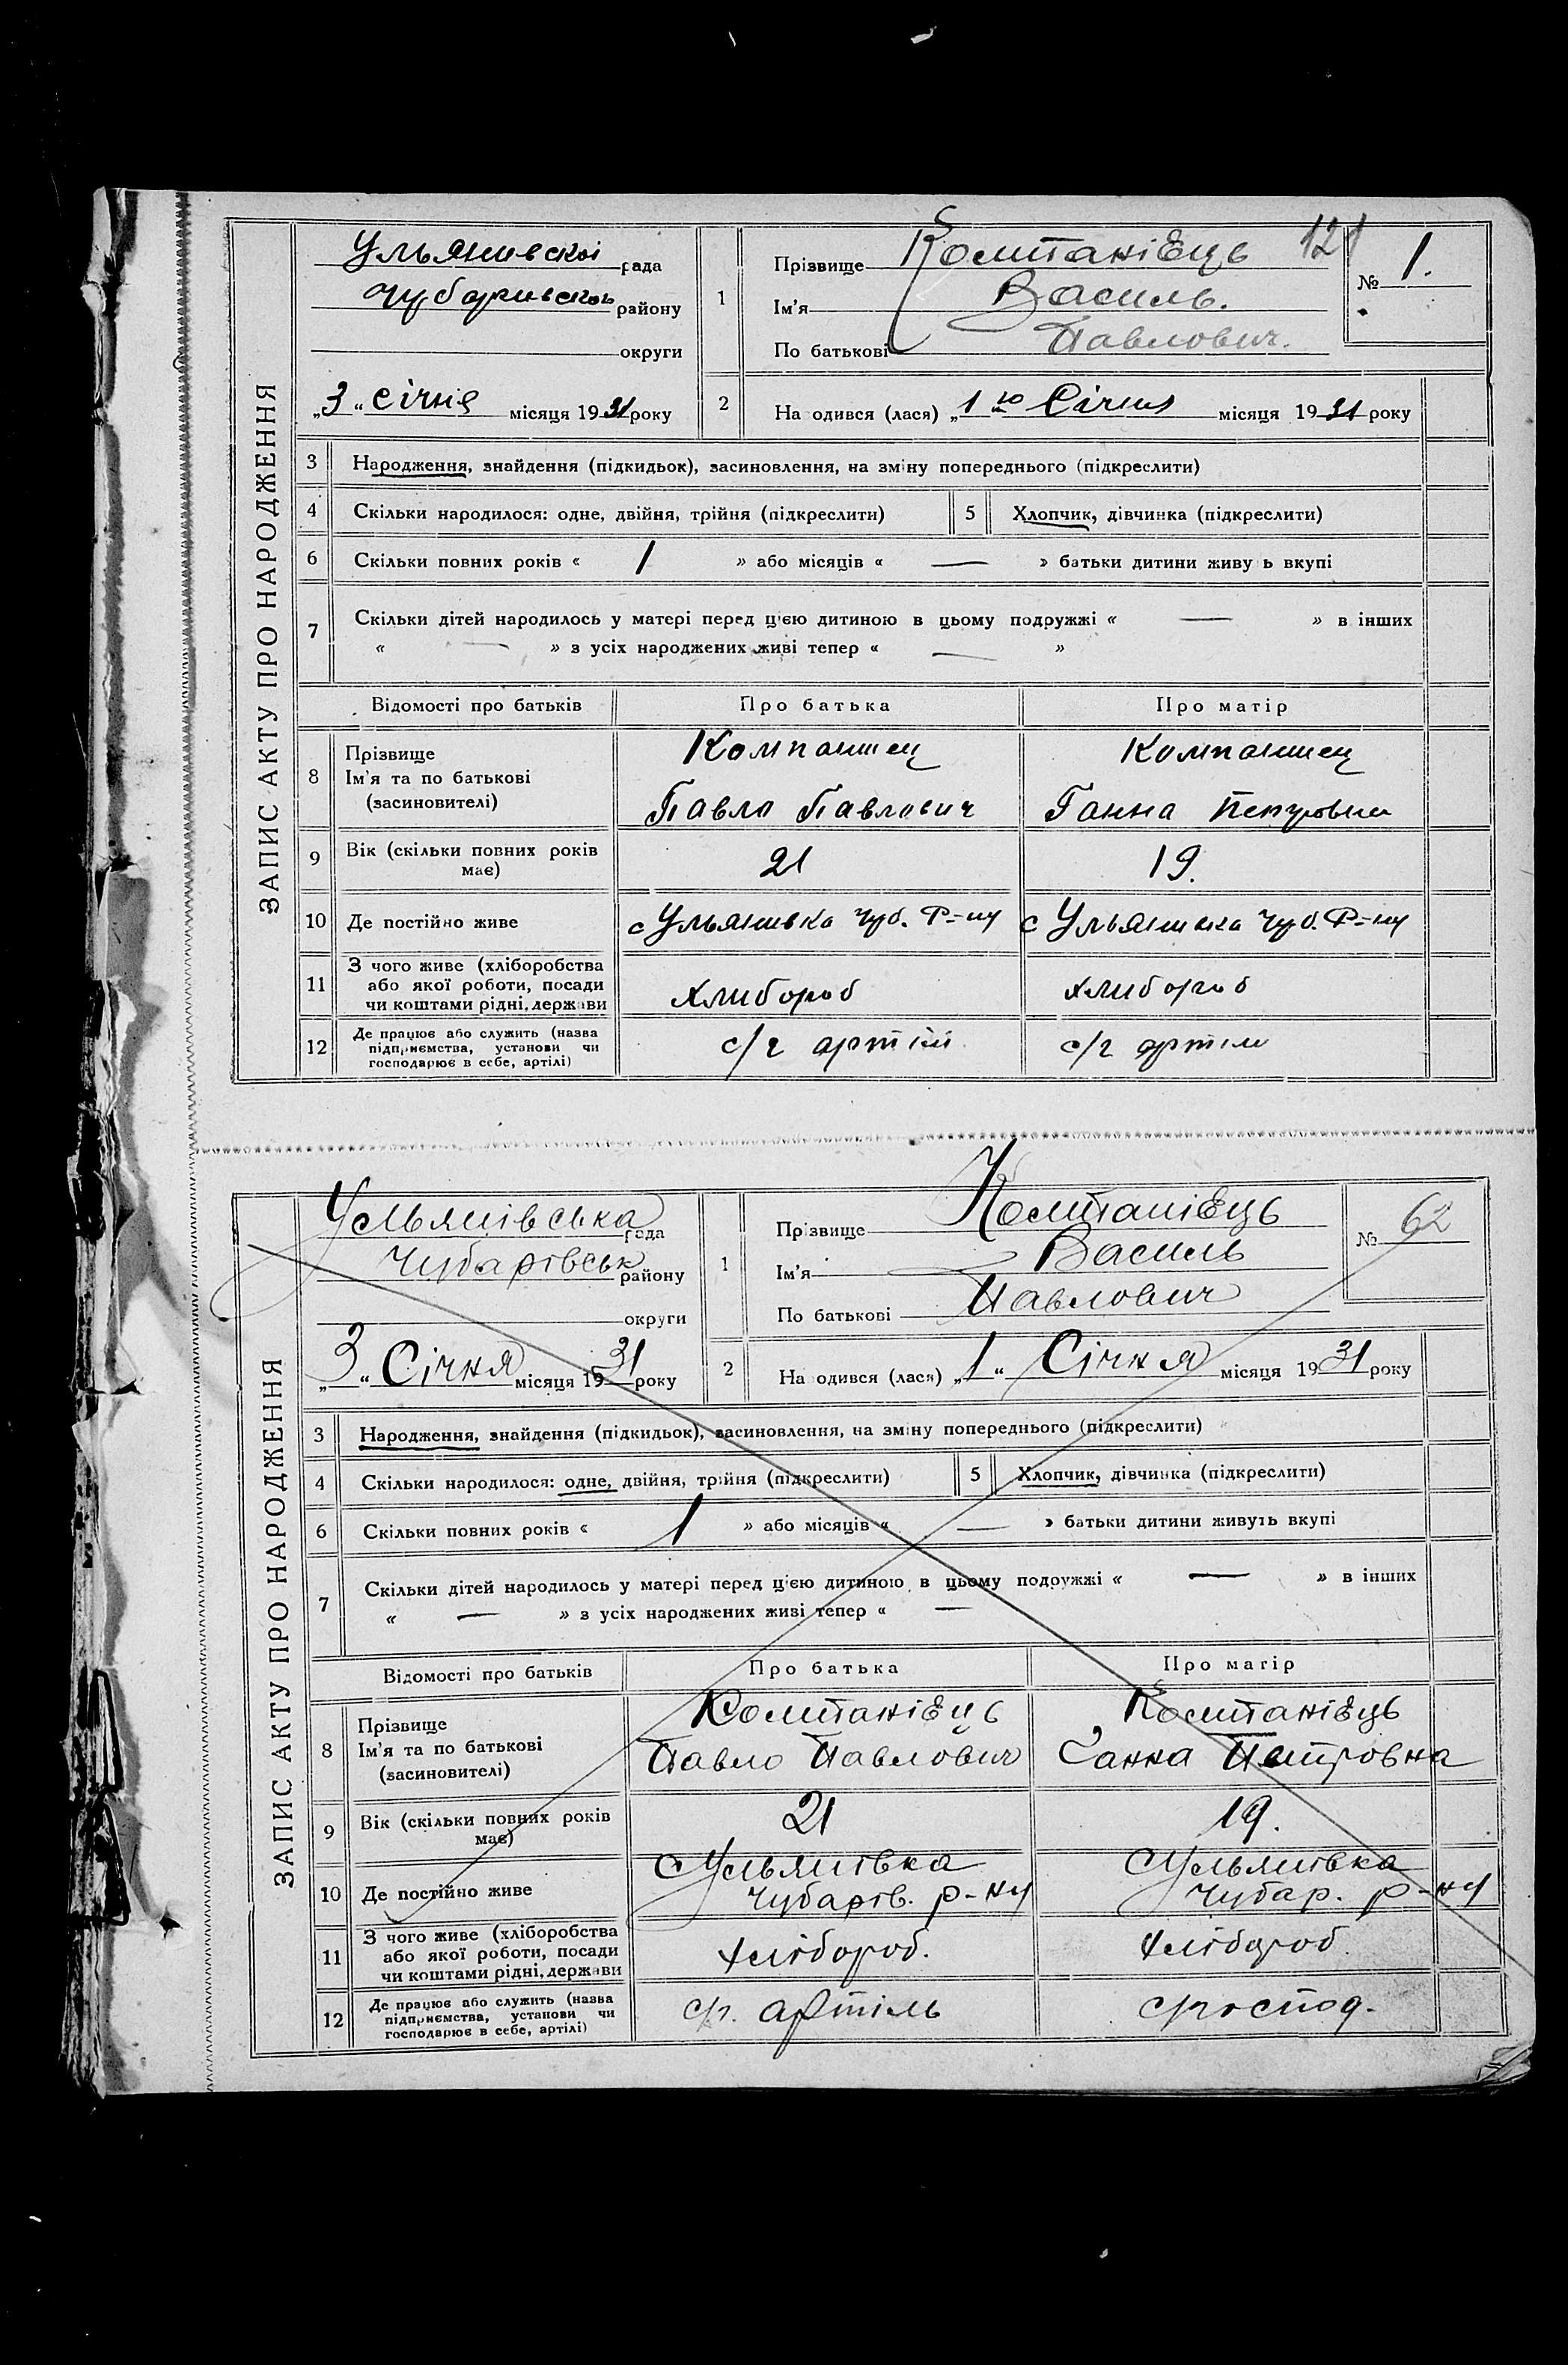 ЗАПИС АКТУ ПРО НАРОДЖЕННЯ
Ульянивскої рада
Чубаривськ району
округи
„3“ січня місяця 1931 року
1
Прізвище Компанієць
Ім'я Василь.
По батькові Павлович.
121
№ 1.
2
На одився (лася) „1го Січня місяця 1931 року
3 Народження, знайдення (підкидьок), засиновлення, на зміну попереднього (підкреслити)
4 Скільки народилося: одне, двійня, трійня (підкреслити) 5 Хлопчик, дівчинка (підкреслити)
6 Скільки повних років « 1 » або місяців « — » батьки дитини живу ь вкупі
7 Скільки дітей народилось у матері перед цією дитиною в цьому подружжі « — » в інших
« — » з усіх народжених живі тепер « — »
Відомості про батьків Про батька Про матір
8 Прізвище Компаниец Компаниец
Ім'я та по батькові
(засиновителі) Павло Павлович Ганна Петровна
9 Вік (скільки повних років має) 21 19.
10 Де постійно живе с Ульянивка Чуб. Р-ну с Ульянивка Чуб. Р-ну
11 З чого живе (хліборобства
або якої роботи, посади
чи коштами рідні, держави хлибороб хлибороб
12 Де працює або служить (назва
підприємства, установи чи
господарює в себе, артілі) с/г артіли с/г артіли
ЗАПИС АКТУ ПРО НАРОДЖЕННЯ
Ульянівська рада
Чубарівськ району
округи
„3“ Січня місяця 1931 року
1
Прізвище Компанієць
Ім'я Василь
По батькові Павлович
№ 62
2
На одився (лася) „1“ Січня місяця 1931 року
3 Народження, знайдення (підкидьок), засиновлення, на зміну попереднього (підкреслити)
4 Скільки народилося: одне, двійня, трійня (підкреслити) 5 Хлопчик, дівчинка (підкреслити)
6 Скільки повних років « 1 » або місяців « — » батьки дитини живуть вкупі
7 Скільки дітей народилось у матері перед цією дитиною в цьому подружжі « — » в інших
« — » з усіх народжених живі тепер « —
Відомості про батьків Про батька Про матір
8 Прізвище Компанієць Компанієць
Ім'я та по батькові Павло Павлович Ганна Петровна
(засиновителі)
9 Вік (скільки повних років має) 21 19.
10 Де постійно живе с Ульянівка с Ульянівка
Чубарів. р-ну Чубар. р-ну
11 З чого живе (хліборобства
або якої роботи, посади
чи коштами рідні, держави хлібороб. хлібороб
12 Де працює або служить (назва
підприємства, установи чи
господарює в себе, артілі) с/г. артіль